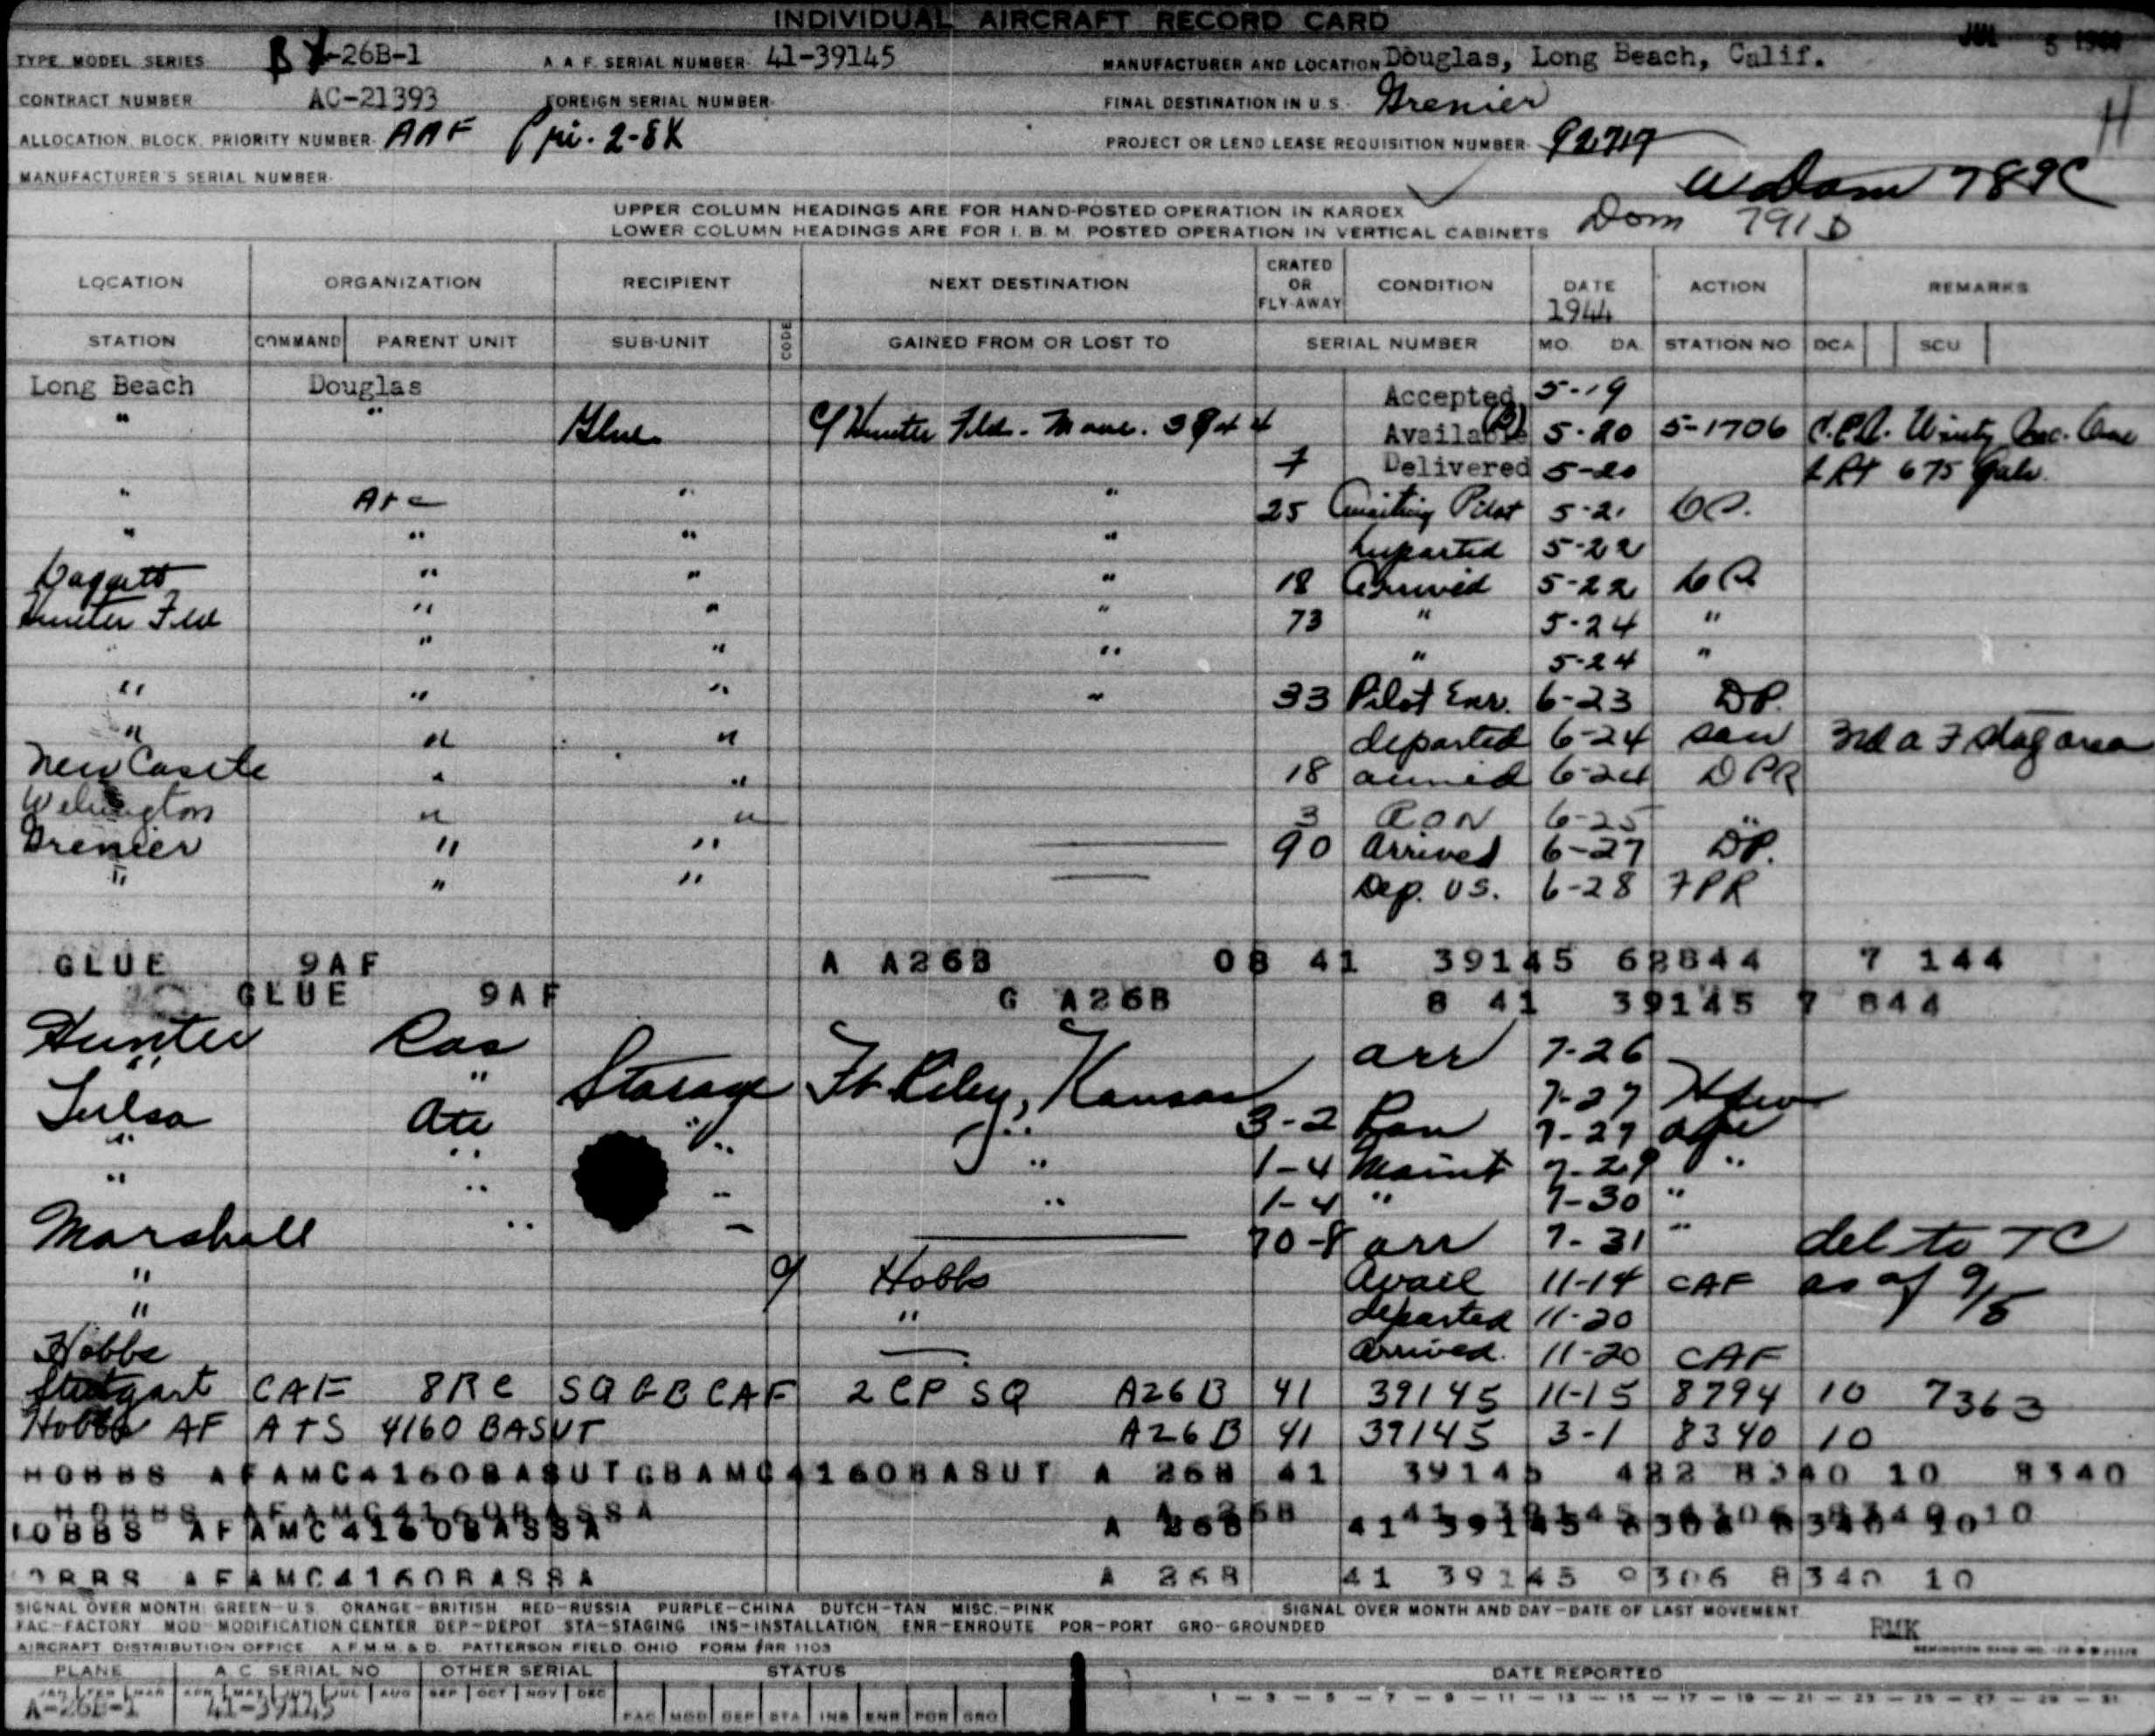 INDIVIDUAL AIRCRAFT RECORD CARD
JUL 5
TYPE MODEL SERIES -26B-1 A A F SERIAL NUMBER- 41-39145 MANUFACTURER AND LOCATION Douglas, Long Beach, Calif.
CONTRACT NUMBER AC-21393 FOREIGN SERIAL NUMBER- FINAL DESTINATION IN U.S. Grenier H
ALLOCATION, BLOCK, PRIORITY NUMBER- AAF Pri. 2-8X PROJECT OR LEND LEASE REQUISITION NUMBER-
MANUFACTURER'S SERIAL NUMBER- 789C
UPPER COLUMN HEADINGS ARE FOR HAND-POSTED OPERATION IN KARDEX
LOWER COLUMN HEADINGS ARE FOR I. B. M. POSTED OPERATION IN VERTICAL CABINETS Dom 791D
LOCATION ORGANIZATION RECIPIENT NEXT DESTINATION CRATED OR FLY-AWAY CONDITION DATE 1944 ACTION REMARKS
STATION COMMAND PARENT UNIT SUB-UNIT CODE GAINED FROM OR LOST TO SERIAL NUMBER MO. DA. STATION NO DCA SCU
Long Beach Douglas Accepted 5-19
" " Glue Hunter Fld. Available 5-20 5-1706
7 Delivered 5-20 675 Gals.
" " " 25 Awaiting Pilot 5-21
" " " " Departed 5-22
Daggett " " " 18 Arrived 5-22
Hunter Fld " " " 73 " 5-24 "
" " " " 5-24 "
" " " " 33 Pilot Enr. 6-23 DP.
" " " departed 6-24 3rd AF stag area
New Castle " " 18 arrived 6-24 DPR
Wilmington " " 3 RON 6-25 "
Grenier " " 90 Arrived 6-27 DP.
" " " Dep. US. 6-28 FPR
GLUE 9AF A A26B 08 41 39145 62844 7 144
GLUE 9AF G A26B 8 41 39145 7 844
Hunter arr 7-26
" " Storage Ft Riley, Kansas 7-27
Tulsa Atc " " 3-2 Ron 7-27
" " " " 1-4 Maint 7-29 "
" " " " 1-4 " 7-30 "
Marshall " 70-8 arr 7-31 " del to TC
" Hobbs Avail 11-14 CAF as of 9/5
" " departed 11-20
Hobbs Arrived. 11-20 CAF
Stuttgart CAF 8RC SQ GB CAF 2 CP SQ A26B 41 39145 11-15 8794 10 7363
Hobbs AF ATS 4160 BASUT A26B 41 39145 3-1 8340 10
HOBBS AFAMC4160BASUTGBAMC4160BASUT A 26B 41 39145 422 8340 10 8340
HOBBS AFAMC4160BASSA
HOBBS AFAMC4160BASSA A 26B 41 39145
HOBBS AFAMC4160BASSA A 26B 41 39145 9306 8340 10
SIGNAL OVER MONTH: GREEN-U.S. ORANGE-BRITISH RED-RUSSIA PURPLE-CHINA DUTCH-TAN MISC.-PINK SIGNAL OVER MONTH AND DAY-DATE OF LAST MOVEMENT
FAC-FACTORY MOD-MODIFICATION CENTER DEP-DEPOT STA-STAGING INS-INSTALLATION ENR-ENROUTE POR-PORT GRO-GROUNDED RMK
AIRCRAFT DISTRIBUTION OFFICE A.F.M.M. & D. PATTERSON FIELD, OHIO FORM ARR 1103
PLANE A.C. SERIAL NO OTHER SERIAL STATUS DATE REPORTED
JAN FEB MAR APR MAY JUN JUL AUG SEP OCT NOV DEC 1 - 3 - 5 - 7 - 9 - 11 - 13 - 15 - 17 - 19 - 21 - 23 - 25 - 27 - 29 - 31
A-26B-1 41-39145 FAC MOD DEP STA INS ENR POR GRO